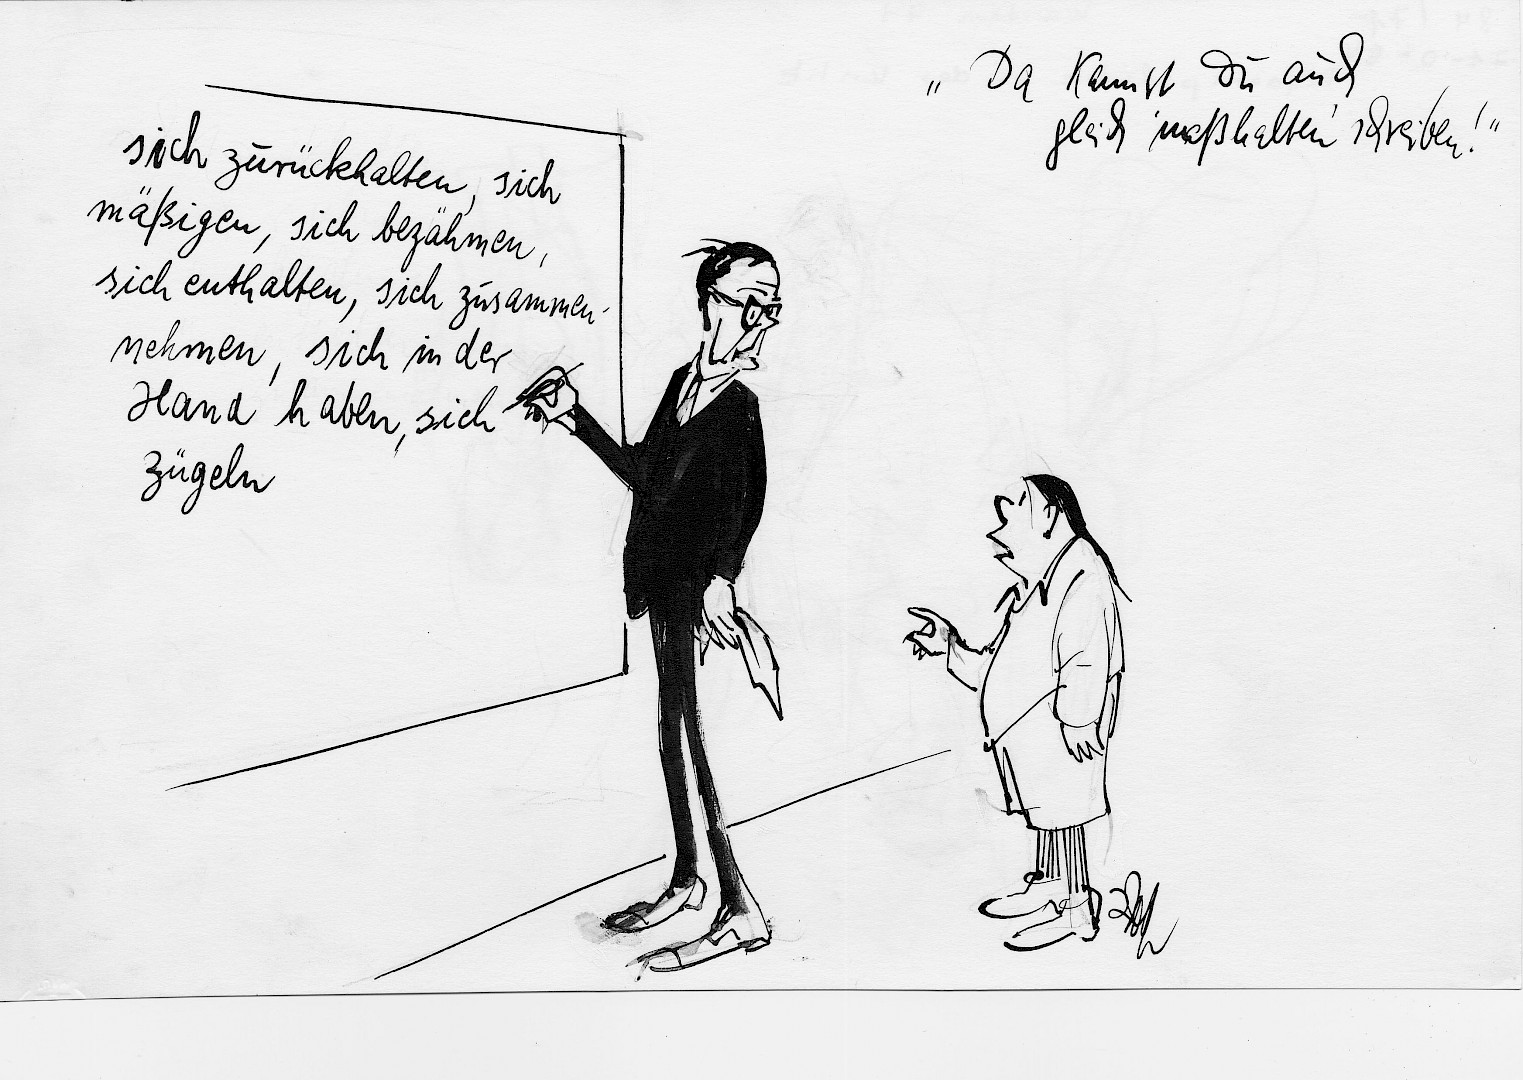 „Da kannst Du auch
gleich 'maßhalten' schreiben!“
sich zurückhalten, sich
mäßigen, sich bezähmen,
sich enthalten, sich zusammen-
nehmen, sich in der
Hand haben, sich
zügeln